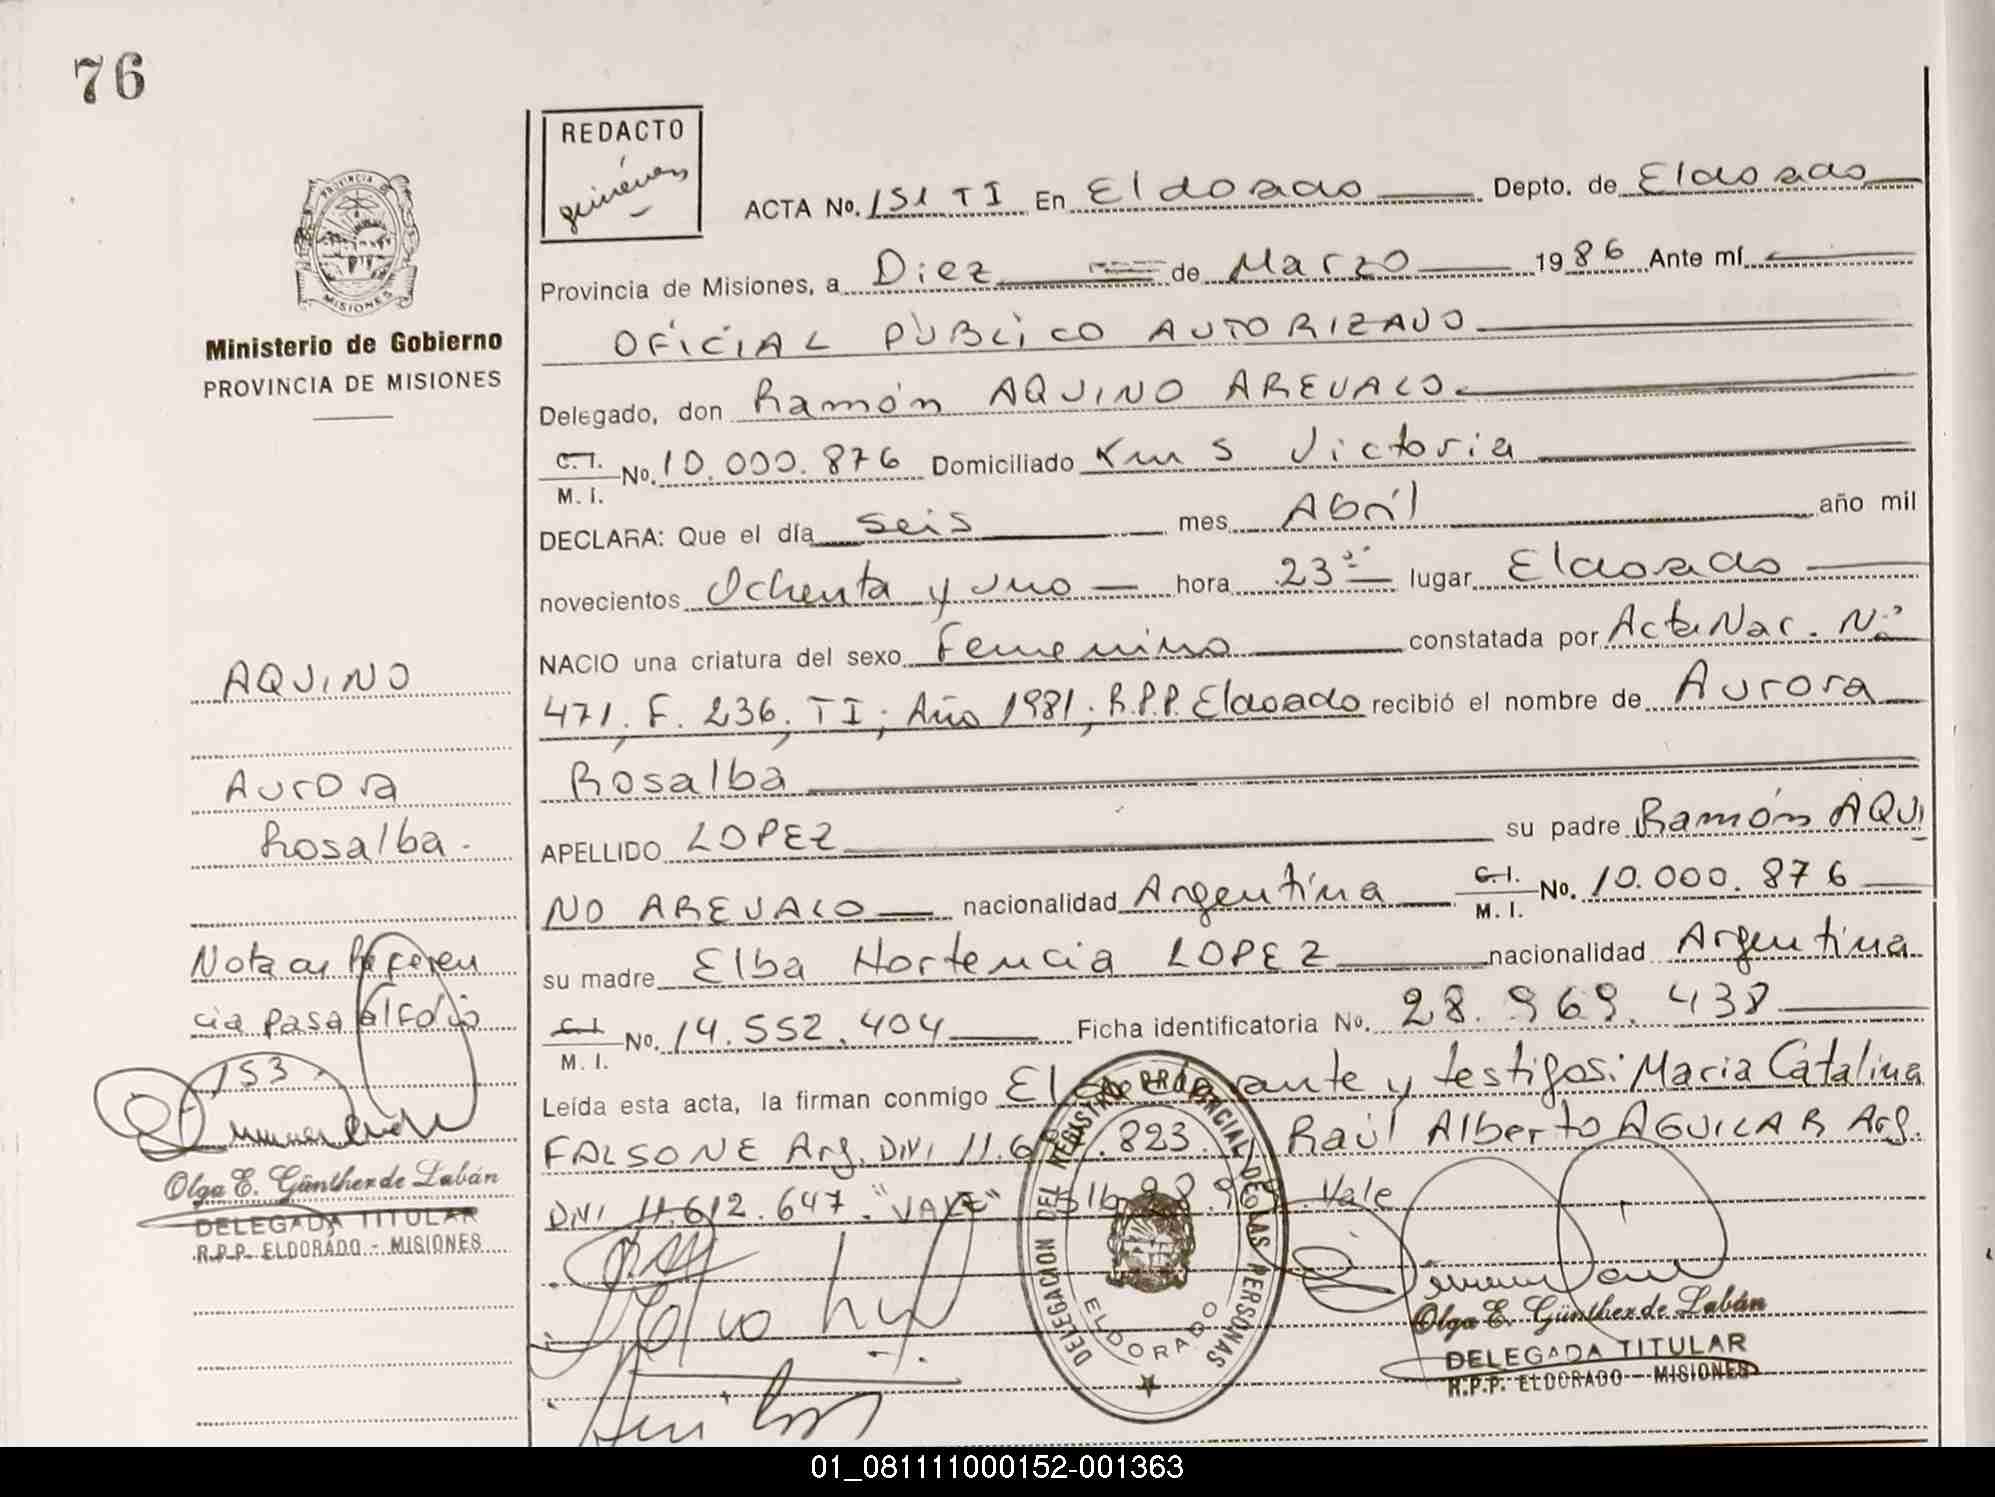 76
REDACTO
ACTA No. 151 TI En Eldorado Depto. de Eldorado
PROVINCIA DE
MISIONES
Provincia de Misiones, a Diez de Marzo 1986 Ante mí
Ministerio de Gobierno
PROVINCIA DE MISIONES
OFICIAL PÙBLICO AUTORIZADO
Delegado, don Ramón AQUINO AREVALO
C.I. / M. I. No. 10.000.876 Domiciliado Km 5 Victoria
DECLARA: Que el día seis mes Abríl año mil
novecientos Ochenta y uno hora 23 lugar Eldorado
NACIO una criatura del sexo Femenino constatada por Acta Nac. Nº
471, F. 236, TI; Año 1981; R.P.P. Eldorado recibió el nombre de Aurora
Rosalba
APELLIDO LOPEZ su padre Ramón AQUI
NO AREVALO nacionalidad Argentína C.I. / M. I. No. 10.000.876
su madre Elba Hortencia LOPEZ nacionalidad Argentína
C.I. / M. I. No. 14.552.404 Ficha identificatoria No. 28.969.438
Leída esta acta, la firman conmigo El y testigos: Maria Catalina
FALSONE Arg. DNI 11.6 .823. Raúl Alberto AGUILAR Arg.
DNI 11.612.647. "VALE" Vale
AQUINO
Aurora
Rosalba.
Nota de Referen
cia pasa al folio
153.
Olga E. Günther de Labán
DELEGADA TITULAR
R.P.P. ELDORADO - MISIONES
DELEGACION DEL REGISTRO PROVINCIAL DE LAS PERSONAS
ELDORADO
Olga E. Günther de Labán
DELEGADA TITULAR
R.P.P. ELDORADO - MISIONES
01_081111000152-001363